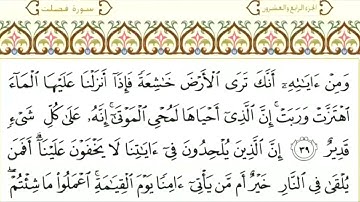 الجزء الرابع والعشرون سورة فصلت
وَمِنْ ءَايَـٰتِهِۦٓ أَنَّكَ تَرَى ٱلْأَرْضَ خَـٰشِعَةً فَإِذَآ أَنزَلْنَا عَلَيْهَا ٱلْمَآءَ
ٱهْتَزَّتْ وَرَبَتْ ۚ إِنَّ ٱلَّذِىٓ أَحْيَاهَا لَمُحْىِ ٱلْمَوْتَىٰٓ ۚ إِنَّهُۥ عَلَىٰ كُلِّ شَىْءٍ
قَدِيرٌ ٣٩ إِنَّ ٱلَّذِينَ يُلْحِدُونَ فِىٓ ءَايَـٰتِنَا لَا يَخْفَوْنَ عَلَيْنَآ ۗ أَفَمَن
يُلْقَىٰ فِى ٱلنَّارِ خَيْرٌ أَم مَّن يَأْتِىٓ ءَامِنًا يَوْمَ ٱلْقِيَـٰمَةِ ۚ ٱعْمَلُوا۟ مَا شِئْتُمْ ۖ